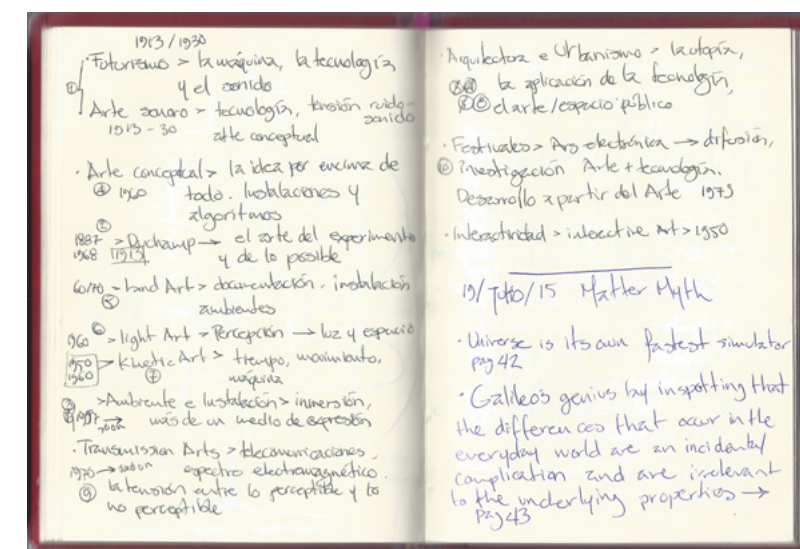 1913/1930
· Futurismo > la máquina, la tecnología
y el sonido
①
Arte sonoro > tecnología, tensión ruido-
sonido
1913-30 arte conceptual
· Arte conceptual > la idea por encima de
④ 1960 todo. Instalaciones y
algoritmos
②
1887 > Duchamp → el arte del experimento
1968 [1913] y de lo posible
60/70 - Land Art > documentación, instalación
⑤ ambientes
1960 ⑥ > light Art > Percepción → luz y espacio
1950 > Kinetic Art > tiempo, movimiento,
1960 ⑦ máquina
> Ambiente e Instalación > inmersión,
más de un medio de expresión
· Transmission Arts > telecomunicaciones,
1970 → espectro electromagnético.
⑨ la tensión entre lo perceptible y lo
no perceptible
· Arquitectura e Urbanismo > la utopía,
la aplicación de la tecnología,
el arte/espacio público
· Festivales > Ars electrónica → difusión,
⑩ investigación Arte + tecnología.
Desarrollo a partir del Arte 1979
· Interactividad > Art > 1950
19/Julio/15 Matter Myth
· Universe is its own fastest simulator
pag 42
· Galileo's genius by inspotting that
the differences that occur in the
everyday world are an incidental
complication and are irrelevant
to the underlying properties →
pag 43